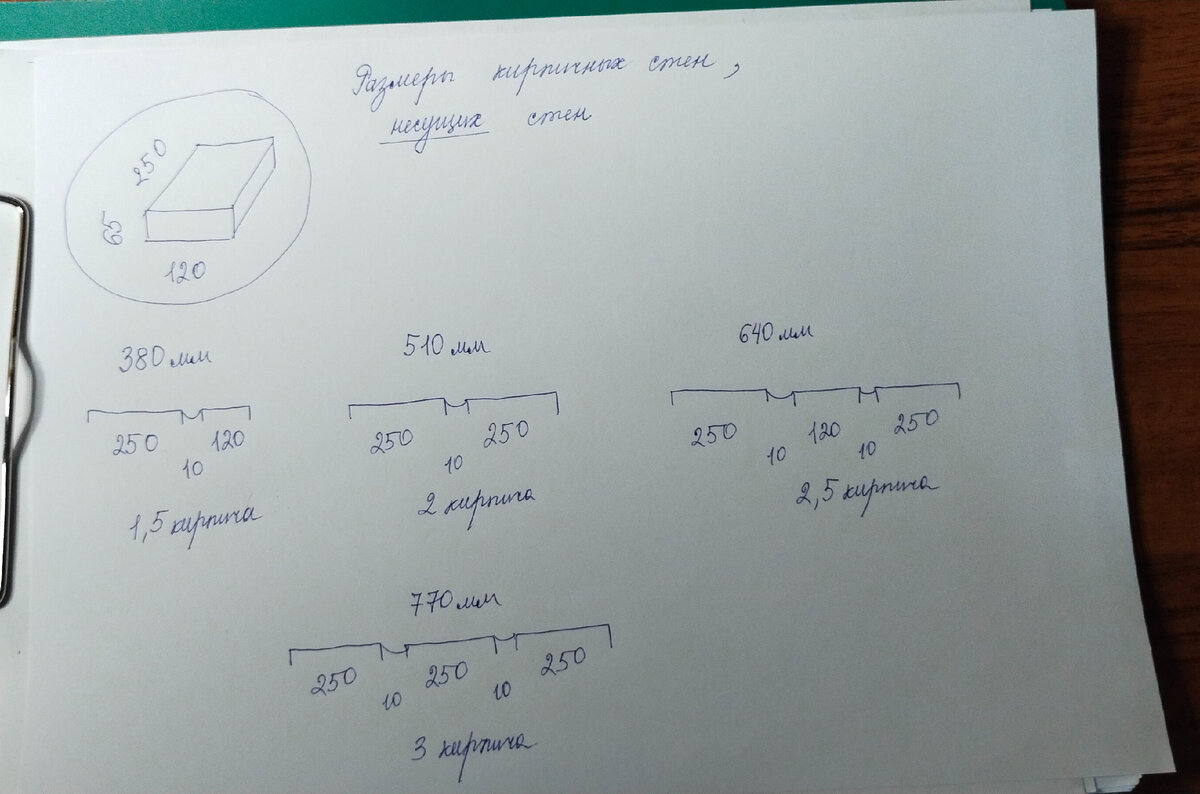 Размеры кирпичных стен,
несущих стен
250
65
120
380 мм
250 120
10
1,5 кирпича
510 мм
250 250
10
2 кирпича
640 мм
250 120 250
10 10
2,5 кирпича
770 мм
250 250 250
10 10
3 кирпича